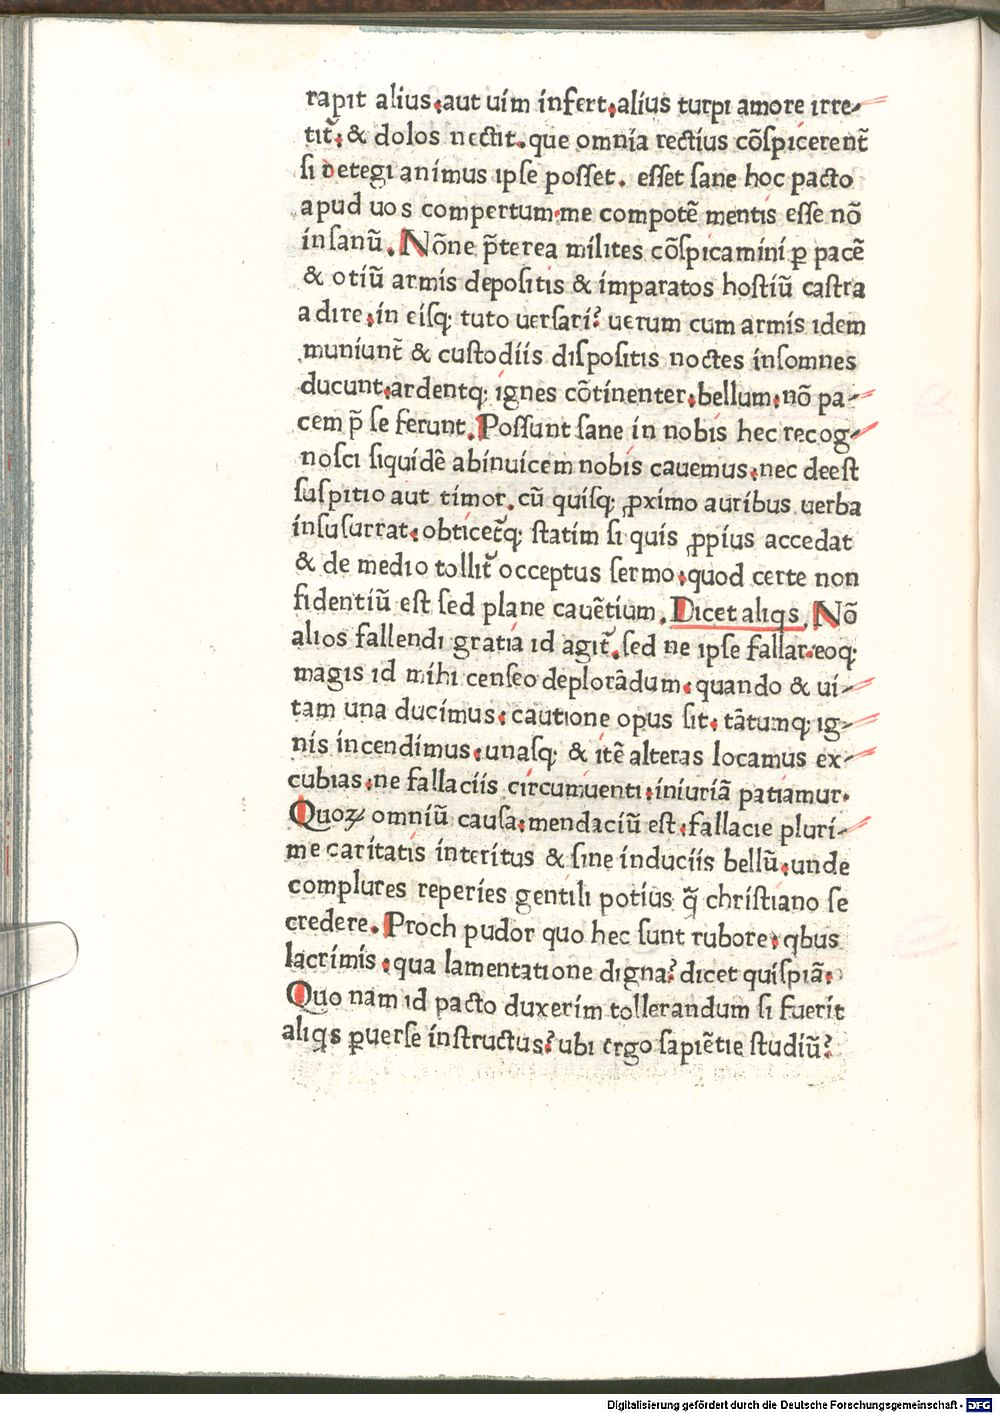 rapit alius:aut uim infert:alius turpi amore irre-
tit᷑:& dolos nectit.que omnia rectius cõſpicerent᷑
ſi detegi animus ipſe poſſet. eſſet ſane hoc pacto
apud uos compertum:me compotẽ mentis eſſe nõ
inſanũ. Nõne p̃terea milites cõſpicamini ꝑ pacẽ
& otiũ armis depoſitis & imparatos hoſtiũ caſtra
adire:in eiſqꝫ tuto uerſari? uerum cum armis idem
muniunt᷑ & cuſtodiis diſpoſitis noctes inſomnes
ducunt:ardentqꝫ ignes cõtinenter:bellum:nõ pa-
cem p̃ ſe ferunt. Poſſunt ſane in nobis hec recog-
noſci ſiquidẽ abinuicem nobis cauemus:nec deeſt
ſuſpitio aut timor. cũ quiſqꝫ ꝓximo auribus uerba
inſuſurrat:obticet᷑qꝫ ſtatim ſi quis ꝓpius accedat
& de medio tollit᷑ occeptus ſermo:quod certe non
fidentiũ eſt ſed plane cauẽtium. Dicet aliꝗs. Nõ
alios fallendi gratia id agit᷑.ſed ne ipſe fallar:eoqꝫ
magis id mihi cenſeo deplorãdum:quando & ui-
tam una ducimus:cautione opus ſit:tãtumqꝫ ig-
nis incendimus:unaſqꝫ & itẽ alteras locamus ex-
cubias:ne fallaciis circumuenti:iniuriã patiamur.
Quoꝝ omniũ cauſa:mendaciũ eſt:fallacie pluri-
me caritatis interitus & ſine induciis bellũ:unde
complures reperies gentili potius q̃ chriſtiano ſe
credere. Proch pudor quo hec ſunt rubore:ꝗbus
lacrimis:qua lamentatione digna? dicet quiſpiã:
Quo nam id pacto duxerim tollerandum ſi fuerit
aliꝗs ꝑuerſe inſtructus? ubi ergo ſapiẽtie ſtudiũ?
Digitalisierung gefördert durch die Deutsche Forschungsgemeinschaft - DFG